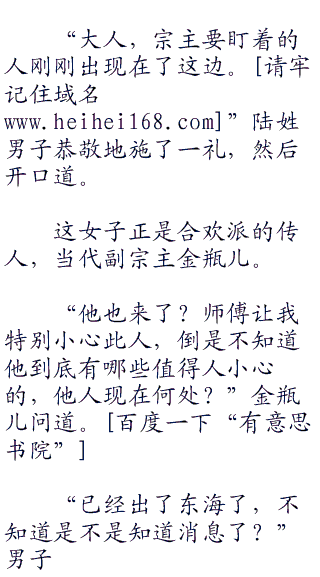 “大人，宗主要盯着的
人刚刚出现在了这边。[请牢
记住域名
www.heihei168.com]”陆姓
男子恭敬地施了一礼，然后
开口道。
这女子正是合欢派的传
人，当代副宗主金瓶儿。
“他也来了？师傅让我
特别小心此人，倒是不知道
他到底有哪些值得人小心
的，他人现在何处？”金瓶
儿问道。[百度一下“有意思
书院”]
“已经出了东海了，不
知道是不是知道消息了？”
男子